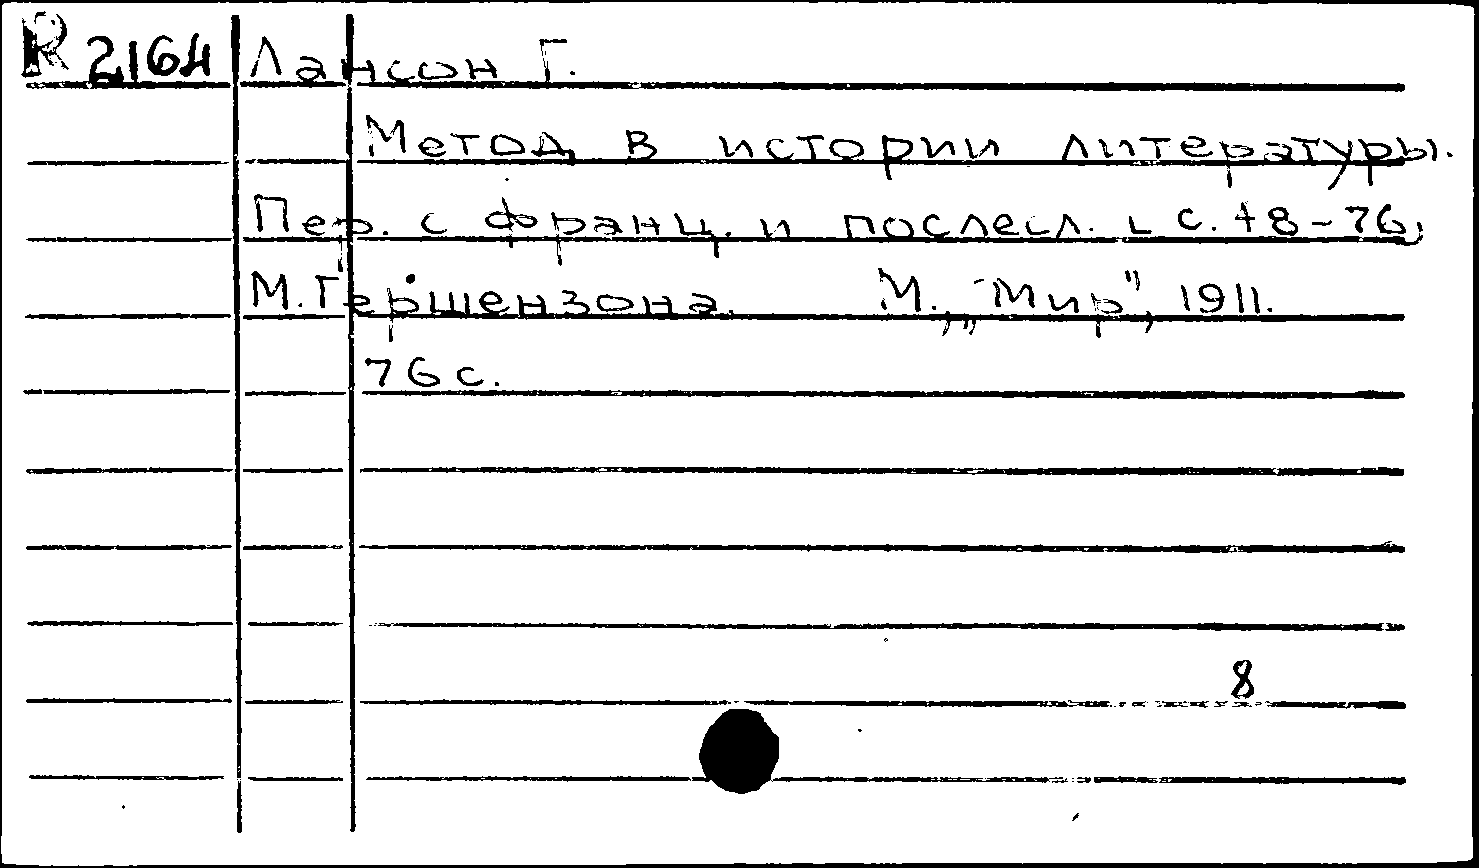 R 2164 Лансон Г.
Метод в истории литературы.
Пер. с франц. и послесл. [с. 48-76]
М. Гершензона. М., „Мир", 1911.
76 с.
8